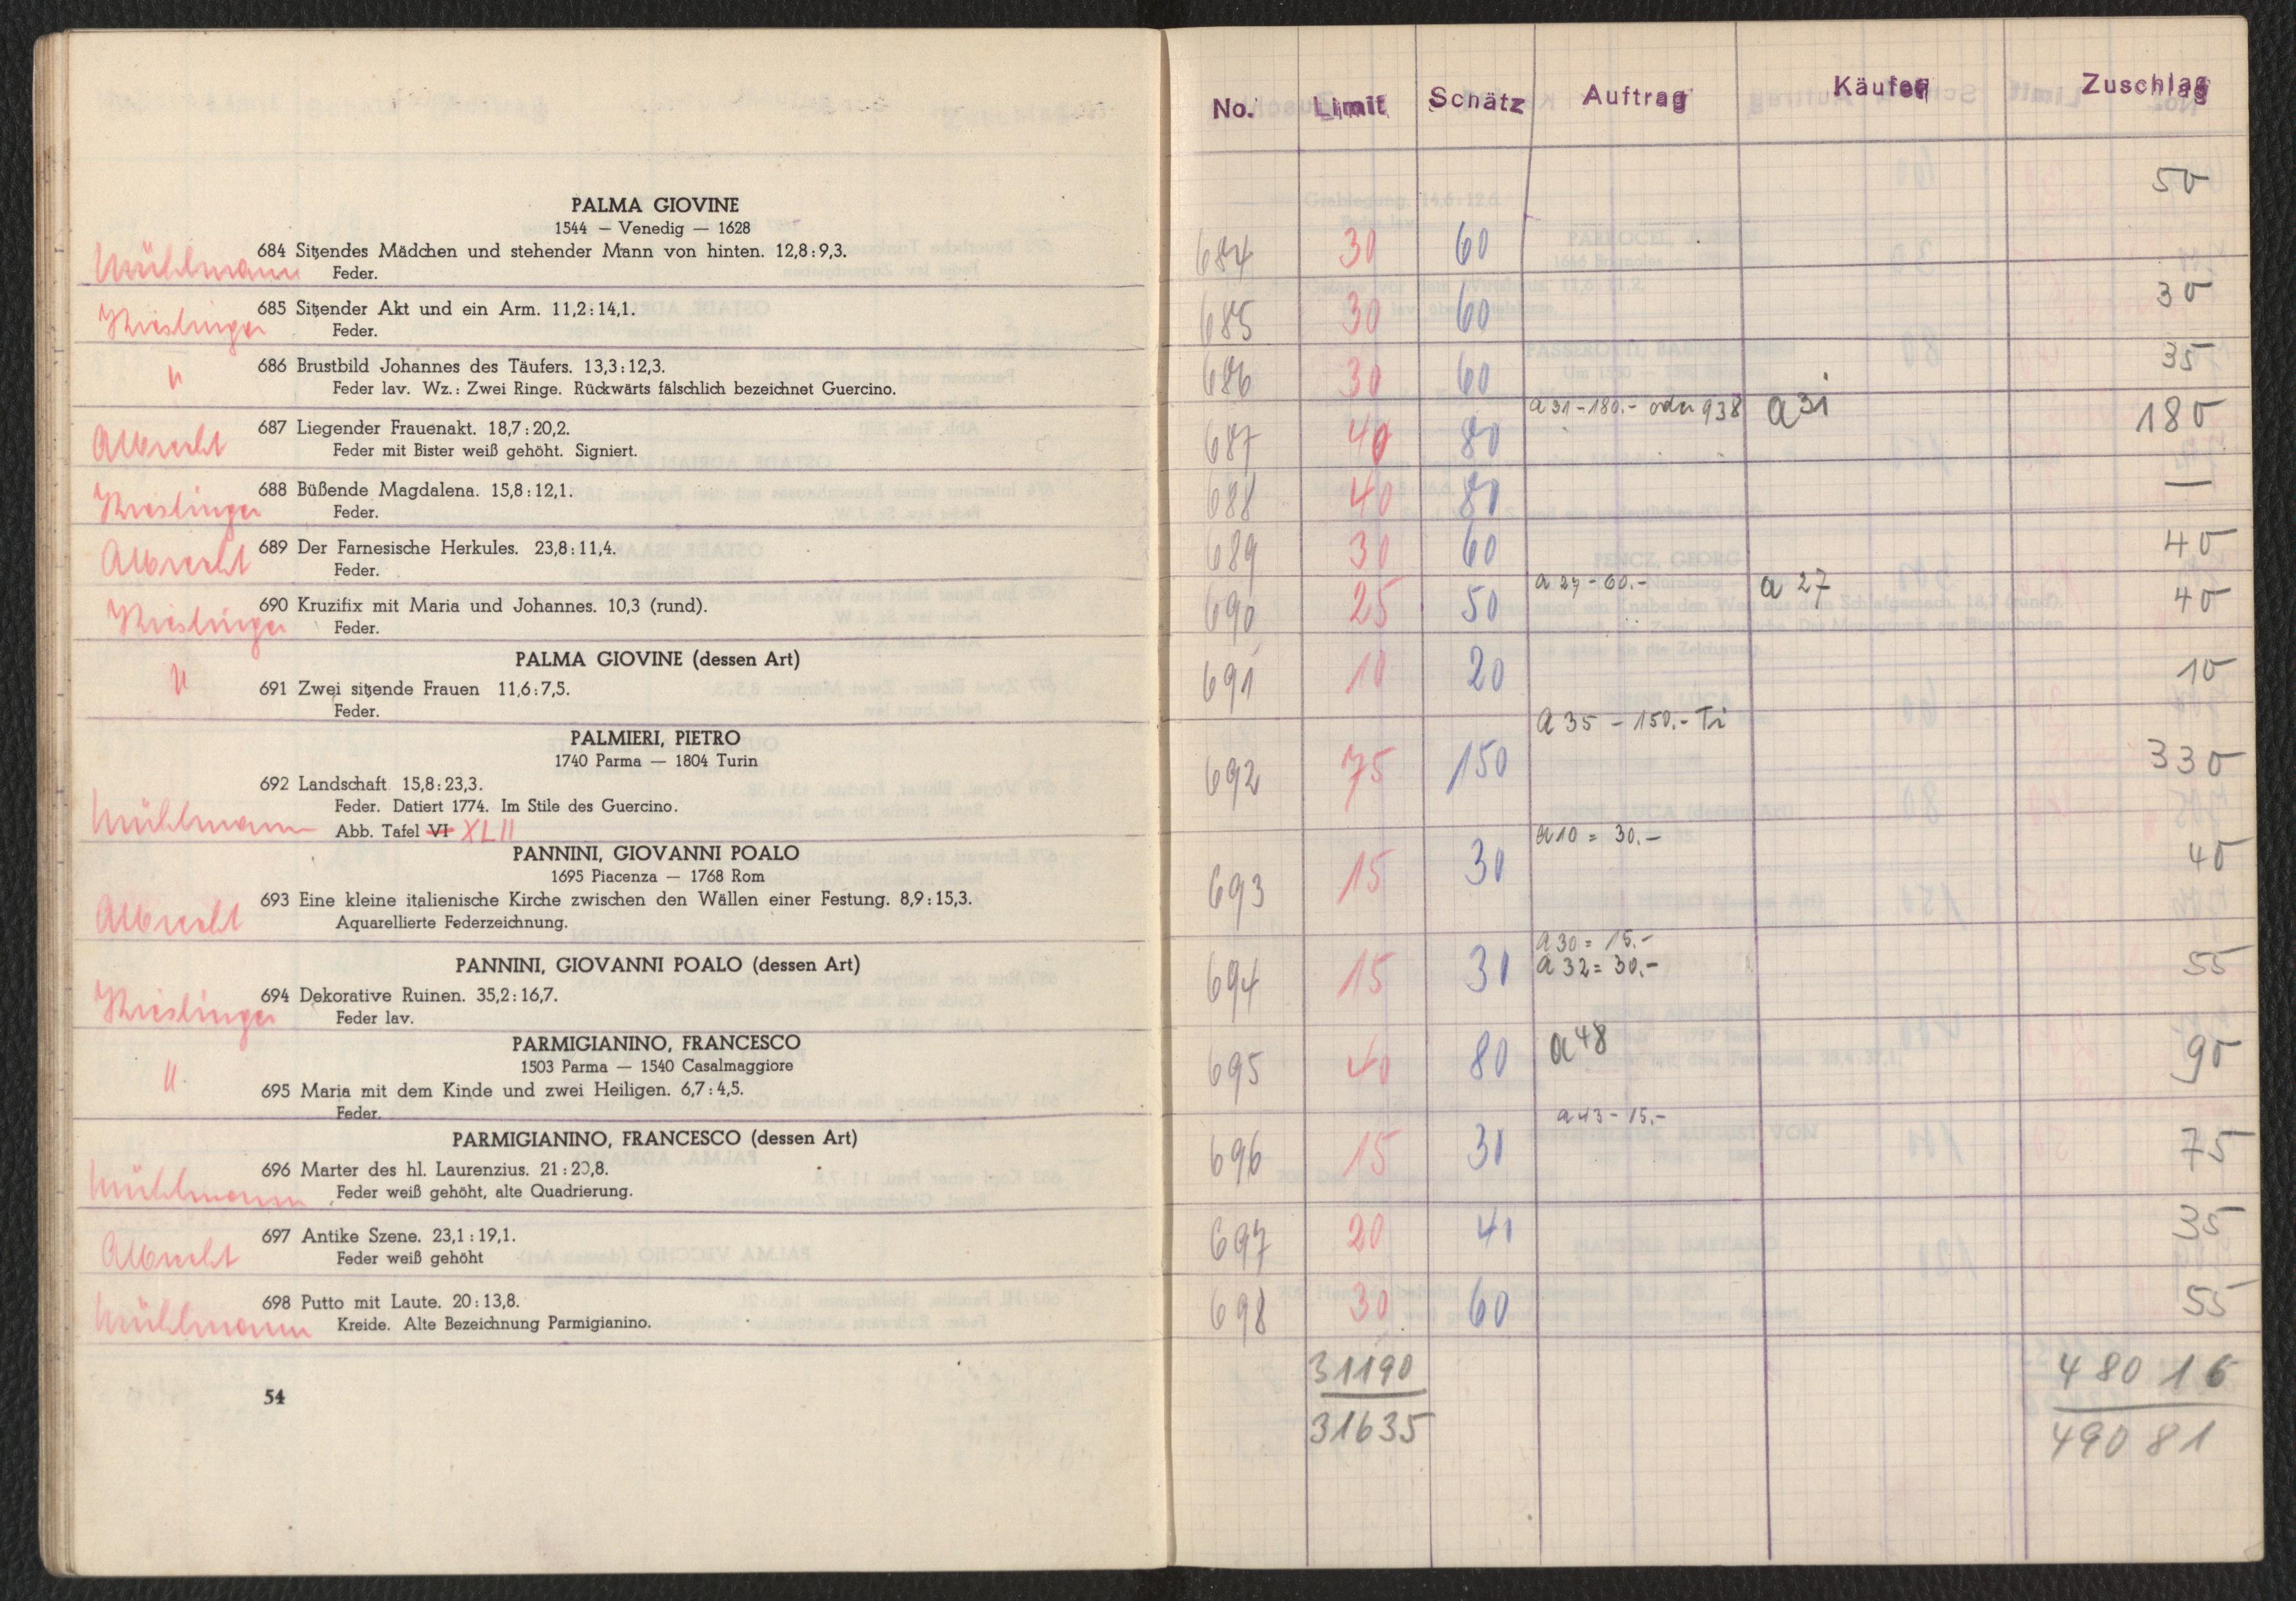 PALMA GIOVINE
1544 — Venedig — 1628
684 Sitzendes Mädchen und stehender Mann von hinten. 12,8 : 9,3.
Mühlmann
Feder.
685 Sitzender Akt und ein Arm. 11,2 : 14,1.
Kieslinger
Feder.
686 Brustbild Johannes des Täufers. 13,3 : 12,3.
"
Feder lav. Wz.: Zwei Ringe. Rückwärts fälschlich bezeichnet Guercino.
687 Liegender Frauenakt. 18,7 : 20,2.
Albrecht
Feder mit Bister weiß gehöht. Signiert.
688 Büßende Magdalena. 15,8 : 12,1.
Kieslinger
Feder.
689 Der Farnesische Herkules. 23,8 : 11,4.
Albrecht
Feder.
690 Kruzifix mit Maria und Johannes. 10,3 (rund).
Kieslinger
Feder.
PALMA GIOVINE (dessen Art)
"
691 Zwei sitzende Frauen 11,6 : 7,5.
Feder.
PALMIERI, PIETRO
1740 Parma — 1804 Turin
692 Landschaft 15,8 : 23,3.
Feder. Datiert 1774. Im Stile des Guercino.
Mühlmann
Abb. Tafel VI XLII
PANNINI, GIOVANNI POALO
1695 Piacenza — 1768 Rom
693 Eine kleine italienische Kirche zwischen den Wällen einer Festung. 8,9 : 15,3.
Albrecht
Aquarellierte Federzeichnung.
PANNINI, GIOVANNI POALO (dessen Art)
694 Dekorative Ruinen. 35,2 : 16,7.
Kieslinger
Feder lav.
PARMIGIANINO, FRANCESCO
1503 Parma — 1540 Casalmaggiore
"
695 Maria mit dem Kinde und zwei Heiligen. 6,7 : 4,5.
Feder.
PARMIGIANINO, FRANCESCO (dessen Art)
696 Marter des hl. Laurenzius. 21 : 20,8.
Mühlmann
Feder weiß gehöht, alte Quadrierung.
697 Antike Szene. 23,1 : 19,1.
Albrecht
Feder weiß gehöht
698 Putto mit Laute. 20 : 13,8.
Mühlmann
Kreide. Alte Bezeichnung Parmigianino.
54
No. Limit Schätz Auftrag Käufer Zuschlag
684 30 60 50
685 30 60 30
686 30 60 35
687 40 80 a 31 - 180.- oder 938 a 31 180
688 40 80 —
689 30 60 40
690 25 50 a 27 - 60.- a 27 40
691 10 20 10
a 35 - 150.-
692 75 150 330
693 15 30 a 10 = 30.- 40
a 30 = 15.-
694 15 30 a 32 = 30.- 55
695 40 80 a 48 90
696 15 30 a 43 - 15.- 75
697 20 40 35
698 30 60 55
31190 48016
31635 49081